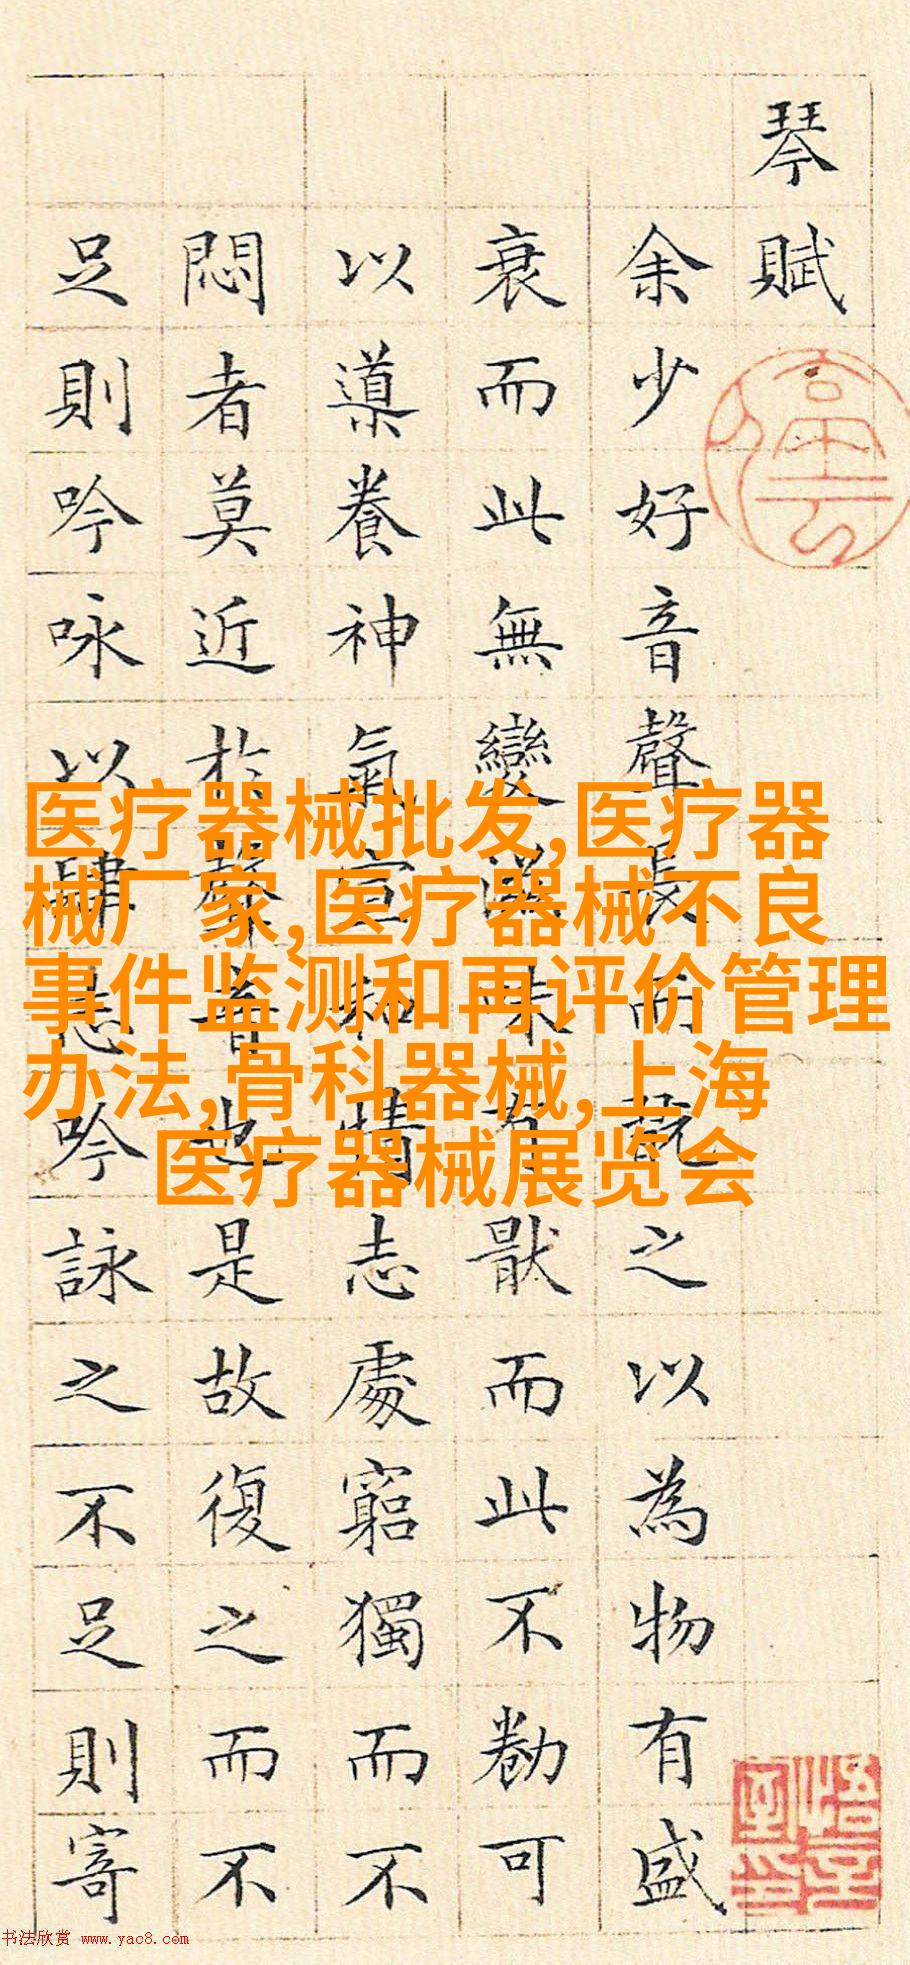 琴賦
余少好音聲長而翫之以為物有盛
衰而此無變滋味有猒而此不勌可
以導養神氣宣和情志處窮獨而不
悶者莫近於聲音也是故復之而不
足則吟咏以肆志吟詠之不足則寄
医疗器械批发,医疗器
械厂家,医疗器械不良
事件监测和再评价管理
办法,骨科器械,上海
医疗器械展览会
书法欣赏 www.yac8.com